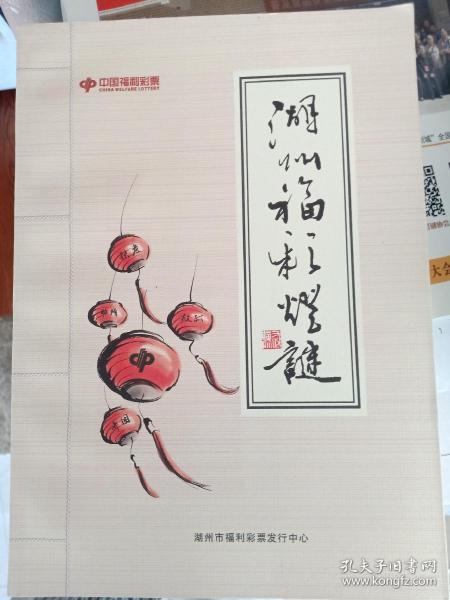 中国福利彩票
CHINA WELFARE LOTTERY
湖州福彩灯謎
湖州市福利彩票发行中心
大会
孔夫子旧书网
www.kongfz.com